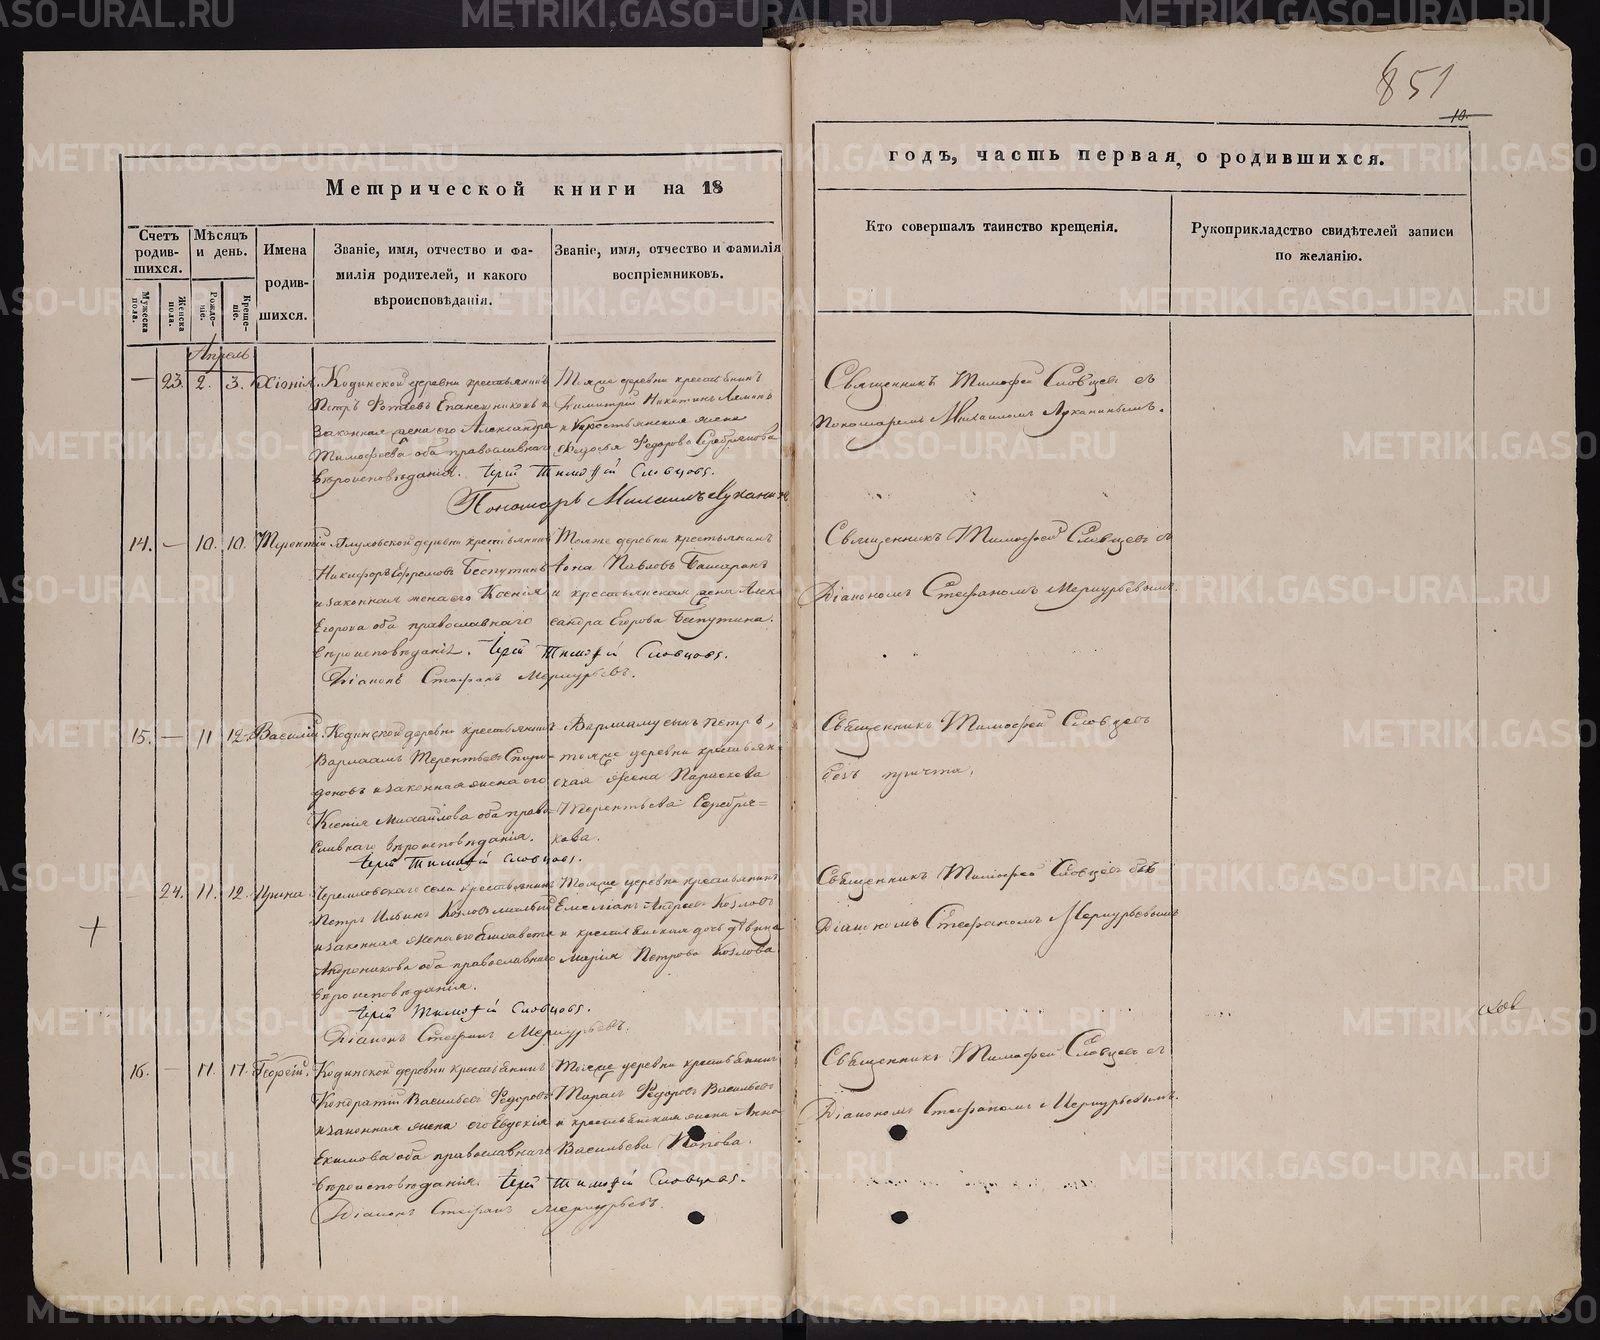 851
10.
Метрической книги на 18
годъ, часть первая, о родившихся.
Счетъ родив-шихся.
Мѣсяцъ и день.
Имена родив-шихся.
Званіе, имя, отчество и фа-
милія родителей, и какого
вѣроисповѣданія.
Званіе, имя, отчество и фамилія
воспріемниковъ.
Кто совершалъ таинство крещенія.
Рукоприкладство свидѣтелей записи
по желанію.
Мужеска пола.
Женска пола.
Рожде-ніе.
Креще-ніе.
Апрель
— 23. 2. 3. Хіонія.
Кодинской деревни крестьянинъ
Петръ Епанешниковъ и
законная жена его Александра
Тимофеева оба православнаго
вѣроисповѣданія. Іерей Тимофей Словцовъ.
Тояже деревни крестьянинъ
Димитрій Никитинъ
и крестьянская жена
Федосья Федорова Серебрякова
Пономарь Михаилъ Луканинъ
Священникъ Тимофей Словцовъ съ
Пономаремъ Михаиломъ Луканинымъ.
14. — 10. 10. Терентій
деревни крестьянинъ
Никифоръ Ефремовъ Беспутинъ
и законная жена его Ксенія
Егорова оба православнаго
вѣроисповѣданія. Іерей Тимофей Словцовъ.
Діаконъ Стефанъ Меркурьевъ.
Тояже деревни крестьянинъ
Іона Павловъ
и крестьянская жена Алек-
сандра Егорова Беспутина.
Священникъ Тимофей Словцовъ съ
Діакономъ Стефаномъ Меркурьевымъ.
15. — 11 12. Василій.
Кодинской деревни крестьянинъ
Варлаамъ Терентьевъ Спири-
доновъ и законная жена его
Ксенія Михайлова оба право-
славнаго вѣроисповѣданія.
Іерей Тимофей Словцовъ.
Варлаама сынъ Петръ,
тояже деревни крестьян-
ская жена Параскева
Терентьева Серебря=
кова.
Священникъ Тимофей Словцовъ
безъ причта.
24. 11. 12. Ирина
села крестьянинъ
Петръ Ильинъ Козловъ
и законная жена его Елисавета
Андроникова оба православнаго
вѣроисповѣданія.
Іерей Тимофей Словцовъ.
Діаконъ Стефанъ Меркурьевъ.
Тояже деревни крестьянинъ
Емеліанъ Андреевъ Козловъ
и крестьянская дочь дѣвица
Марія Петрова Козлова
Священникъ Тимофей Словцовъ съ
Діакономъ Стефаномъ Меркурьевымъ
16. — 17. 17. Георгій.
Кодинской деревни крестьянинъ
Кондратій Васильевъ Федоровъ
и законная жена его Евдокія
Екимова оба православнаго
вѣроисповѣданія. Іерей Тимофей Словцовъ.
Діаконъ Стефанъ Меркурьевъ.
Тояже деревни крестьянинъ
Тарасъ Федоровъ Васильевъ
и крестьянская жена Анна
Васильева Попова.
Священникъ Тимофей Словцовъ съ
Діакономъ Стефаномъ Меркурьевымъ.
METRIKI.GASO-URAL.RU